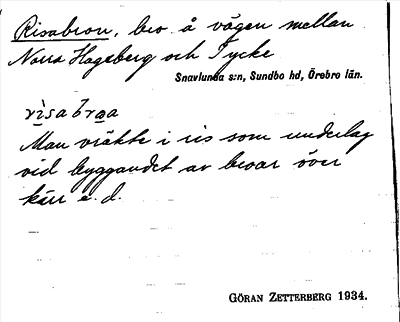 Risabron, bro å vägen mellan
Norra Hageberg och Tycke
Snavlunda s:n, Sundbo hd, Örebro län.
risabrωa
Man vräkte i ris som underlag
vid byggandet av broar över
kärr o. d.
GÖRAN ZETTERBERG 1934.